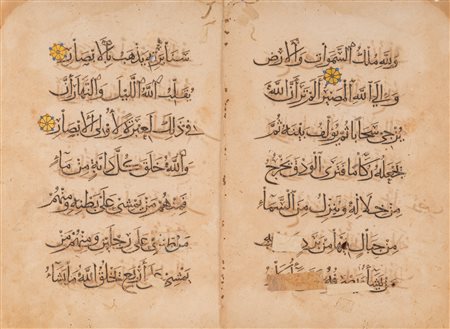 ولله ملك السموات والأرض
وإلى الله المصير ألم تر أن الله
يزجي سحابا ثم يؤلف بينه ثم
يجعله ركاما فترى الودق يخرج
من خلاله وينزل من السماء
من جبال فيها من برد
من يشاء ويصرفه
سنا برقه يذهب بالأبصار
يقلب الله الليل والنهار إن
في ذلك لعبرة لأولي الأبصار
والله خلق كل دابة من ماء
فمنهم من يمشي على بطنه ومنهم
من يمشي على رجلين ومنهم من
يمشي على أربع يخلق الله ما يشاء